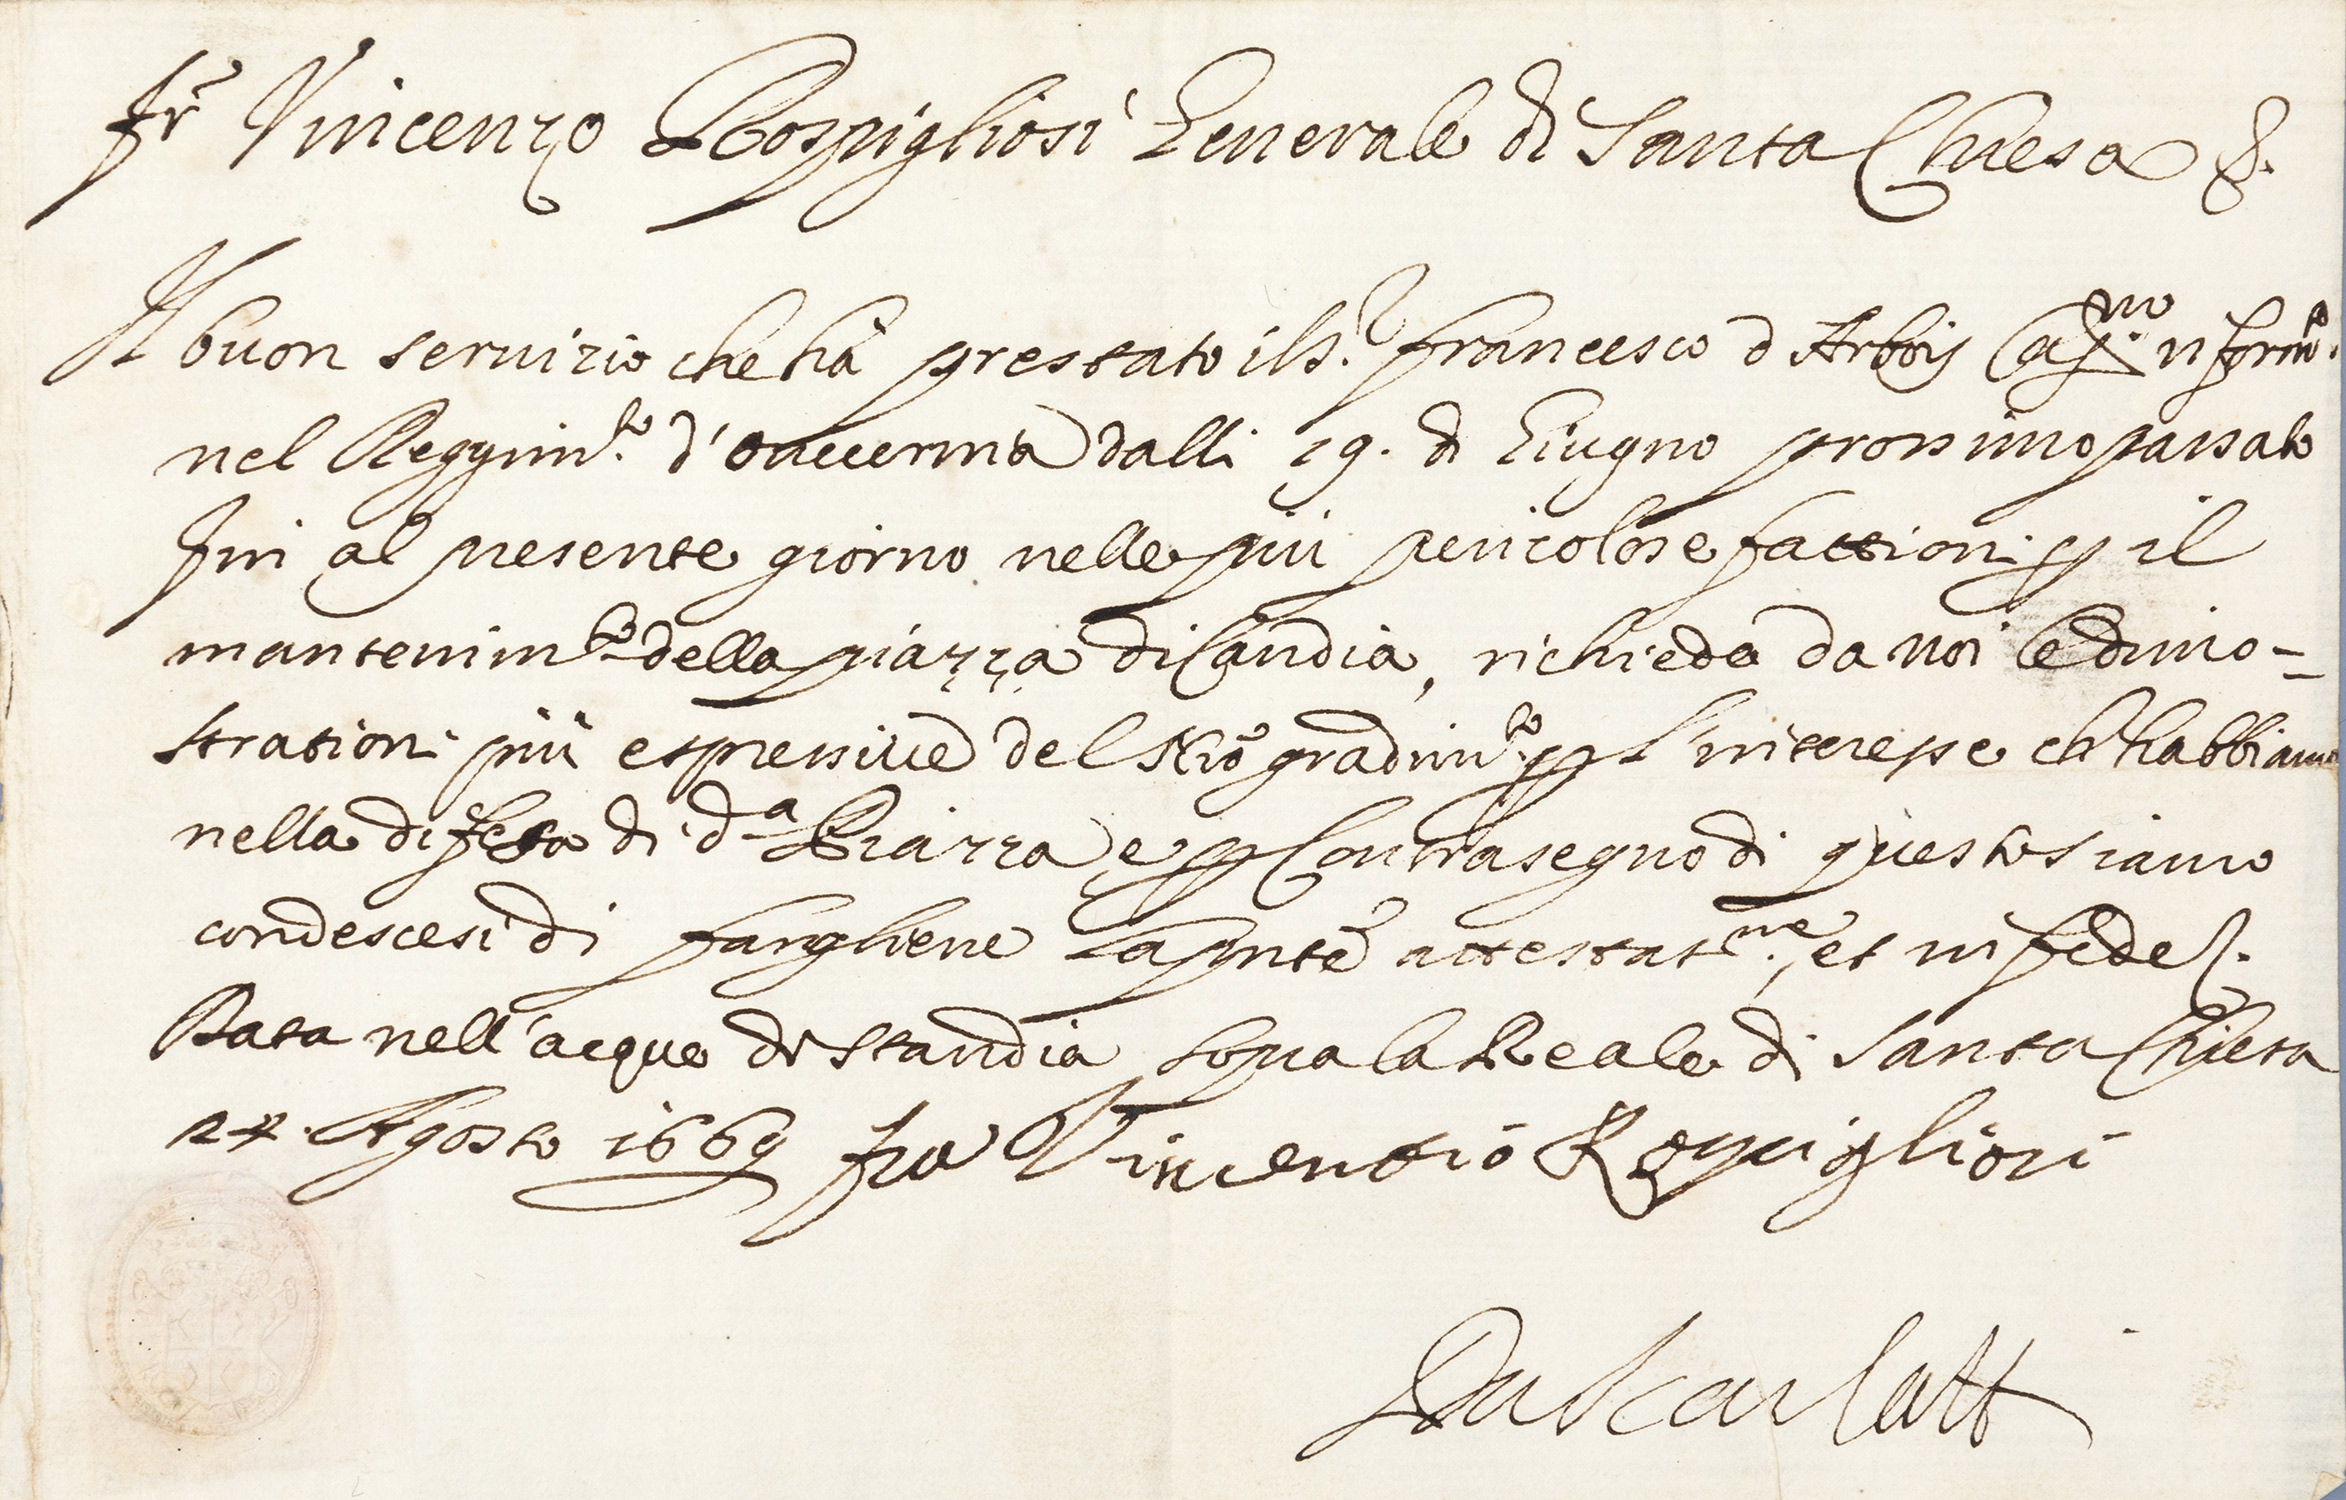 fr Vincenzo Rospigliosi Generale di Santa Chiesa &.
Il buon seruizio che hà prestato il s.r francesco d Arbois Cap.no riform.to
nel Reggim.to d' dalli 19. di Giugno prossimo passato
fin al presente giorno nelle più pericolose fattioni p il
mantenim.to della piazza di Candia, richiede da noi le dimo=
strationi più espressiue del nrō gradim.to p l'interesse ch'habbiamo
nella difesa di d.a Piazza, e p Contrasegno di questo siamo
condescesi di fargliene la pnte attestat.ne, et in fede &.
Data nell'acque di Standia sopra la Reale di Santa Chiesa
24. Agosto 1669 fra Vincentio Rospigliosi